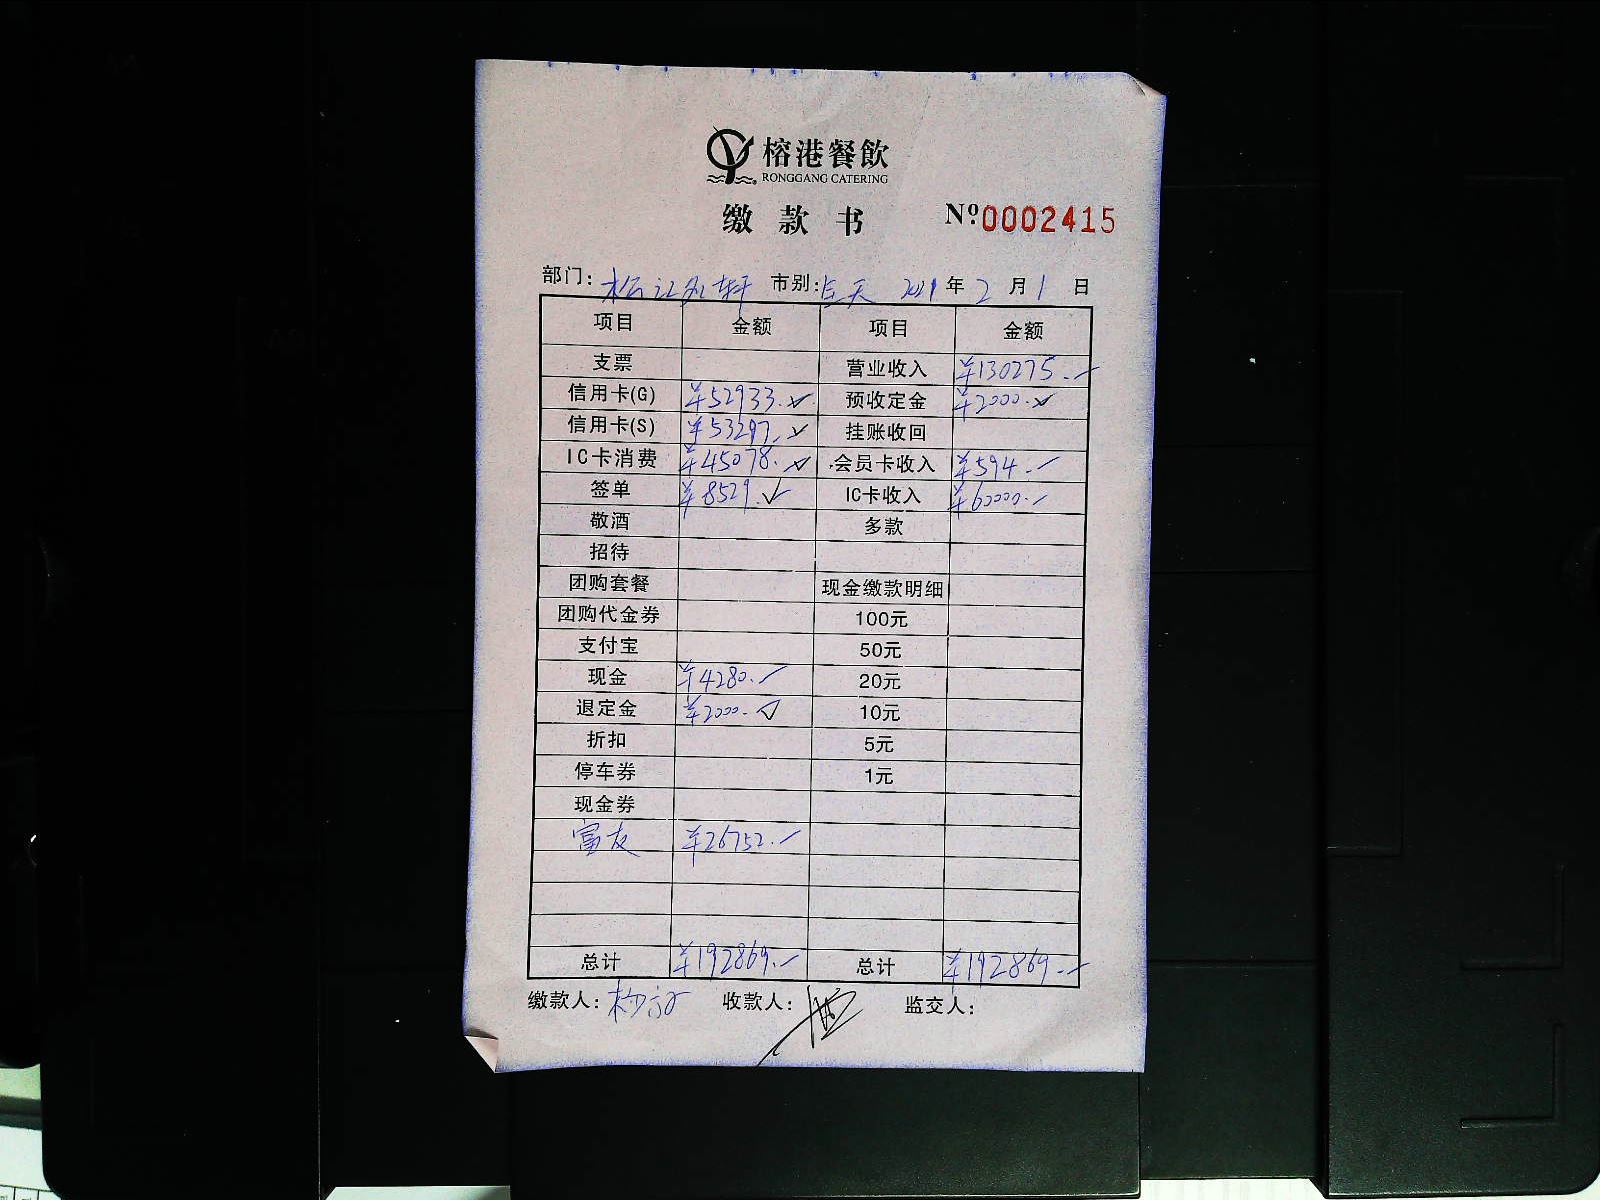 榕港餐飲
RONGGANG CATERING
缴款书 Nº0002415
部门: 松江 轩 市别: 天 2021年2月1日
项目 金额 项目 金额
支票 营业收入 ¥130275.
信用卡(G) ¥52933. 预收定金 ¥2000.
信用卡(S) ¥53297. 挂账收回
IC卡消费 ¥45078. 会员卡收入 ¥594.
签单 ¥8529. IC卡收入 ¥60000.
敬酒 多款
招待
团购套餐 现金缴款明细
团购代金券 100元
支付宝 50元
现金 ¥4280. 20元
退定金 ¥2000. 10元
折扣 5元
停车券 1元
现金券
富友 ¥26752.
总计 ¥192869. 总计 ¥192869.
缴款人: 收款人: 监交人: